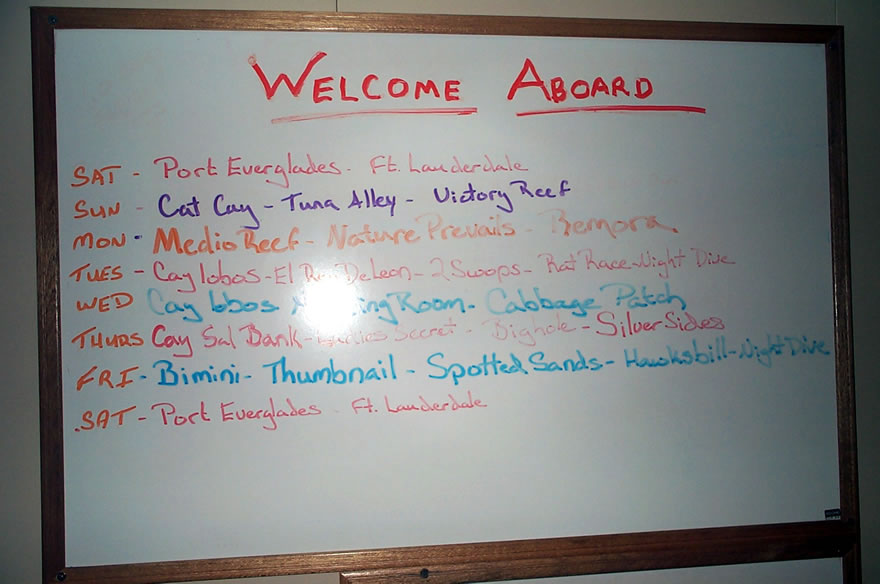 WELCOME ABOARD
SAT - Port Everglades - Ft. Lauderdale
SUN - Cat Cay - Tuna Alley - Victory Reef
MON - Medio Reef - Nature Prevails - Remora
TUES - Cay lobos - El DeLeon - 2 Swoops - Rat Race - Night Dive
WED Cay lobos Room - Cabbage Patch
THURS Cay Sal Bank - Secret - Bighole - Silver Sides
FRI - Bimini - Thumbnail - Spotted Sands - Hawksbill - Night Dive
SAT - Port Everglades - Ft. Lauderdale